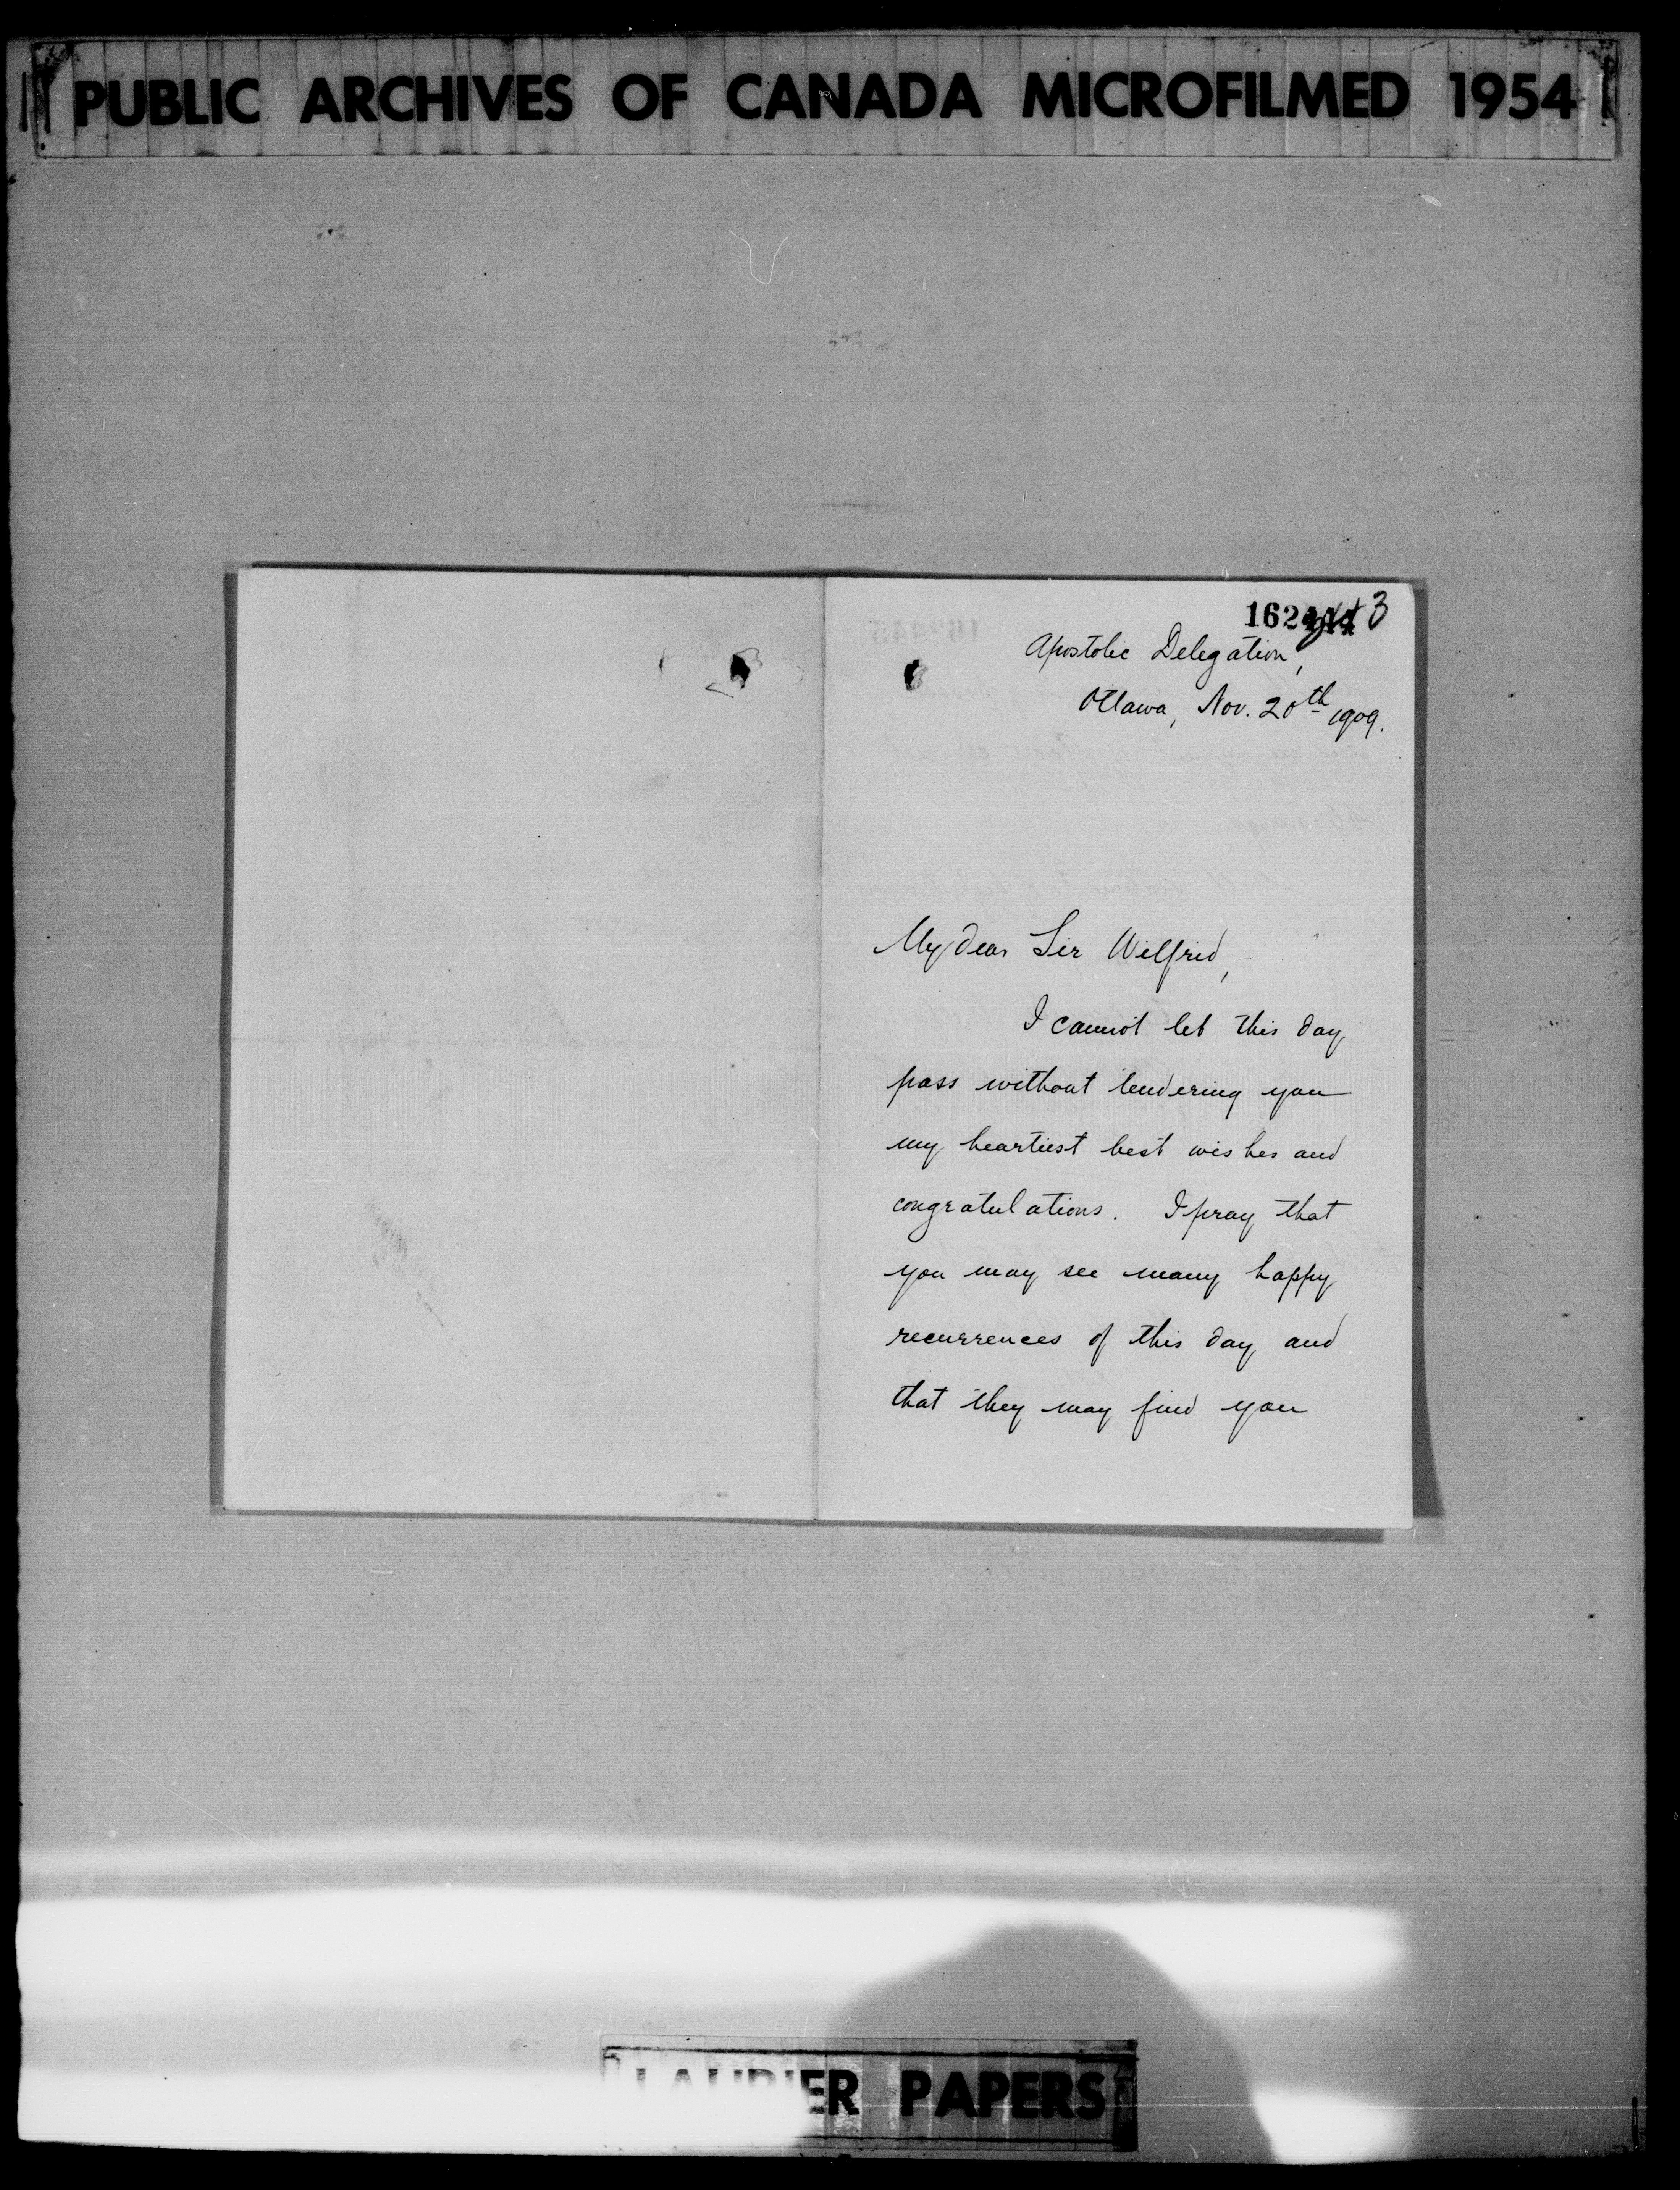 PUBLIC ARCHIVES OF CANADA MICROFILMED 1954
3
Apostolic Delegation,
Ottawa, Nov. 20th 1909.
My dear Sir Wilfrid,
I cannot let this day
pass without tendering you
my heartiest best wishes and
congratulations. I pray that
you may see many happy
recurrences of this day and
that they may find you
LAURIER PAPERS